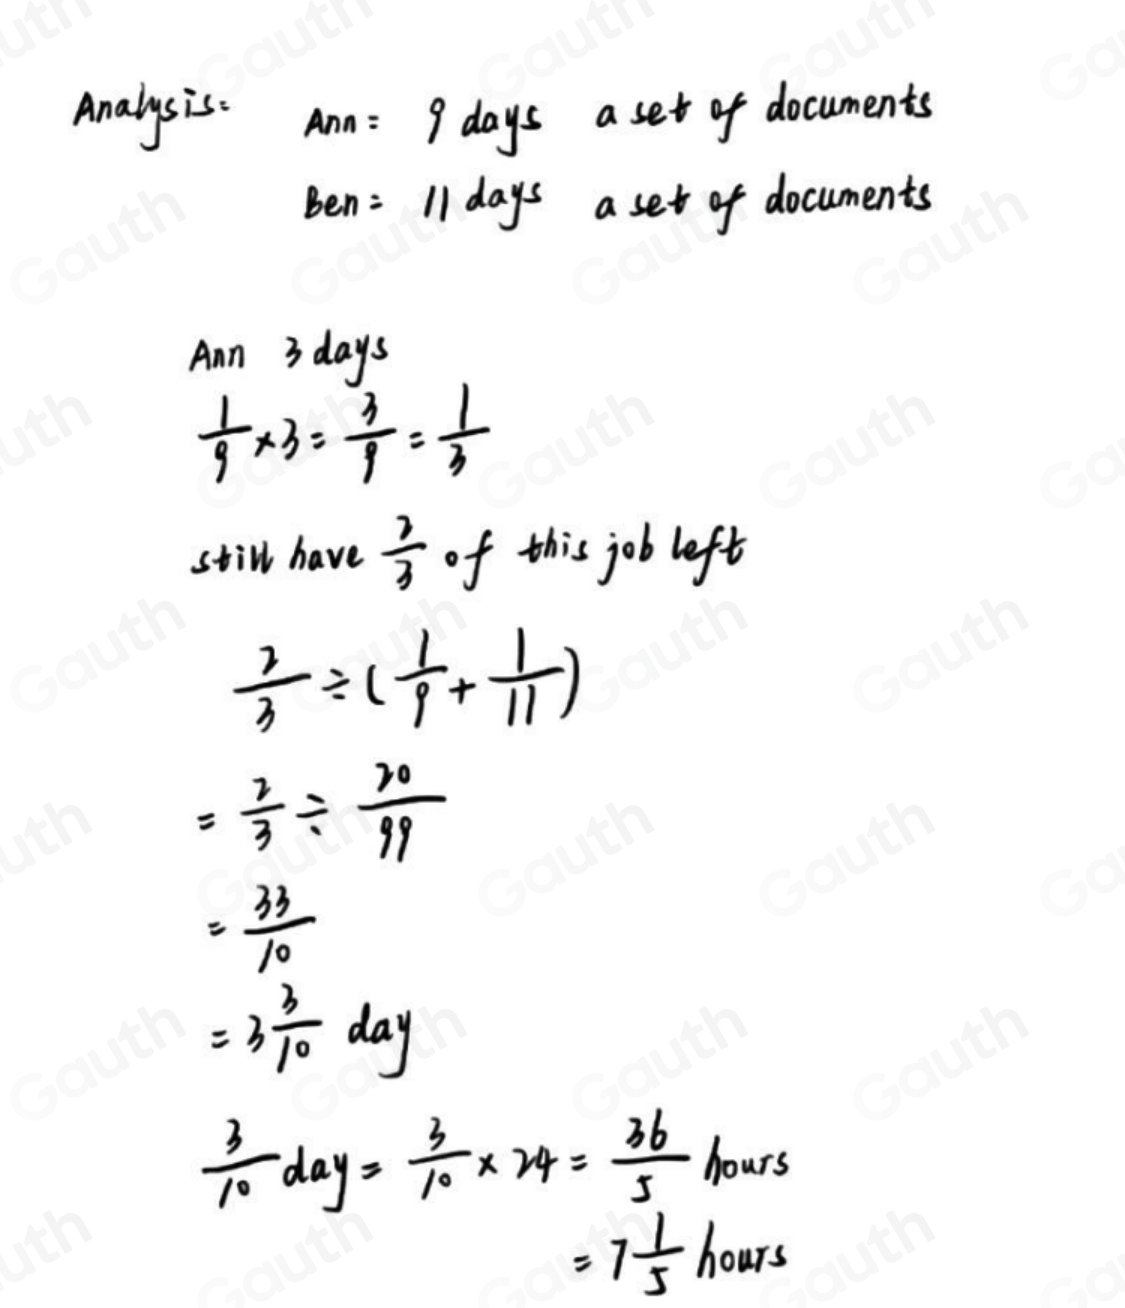 Analysis: Ann = 9 days a set of documents
Ben = 11 days a set of documents
Ann 3 days
1/9 × 3 = 3/9 = 1/3
still have 2/3 of this job left
2/3 ÷ (1/9 + 1/11)
= 2/3 ÷ 20/99
= 33/10
= 3 3/10 day
3/10 day = 3/10 × 24 = 36/5 hours
= 7 1/5 hours